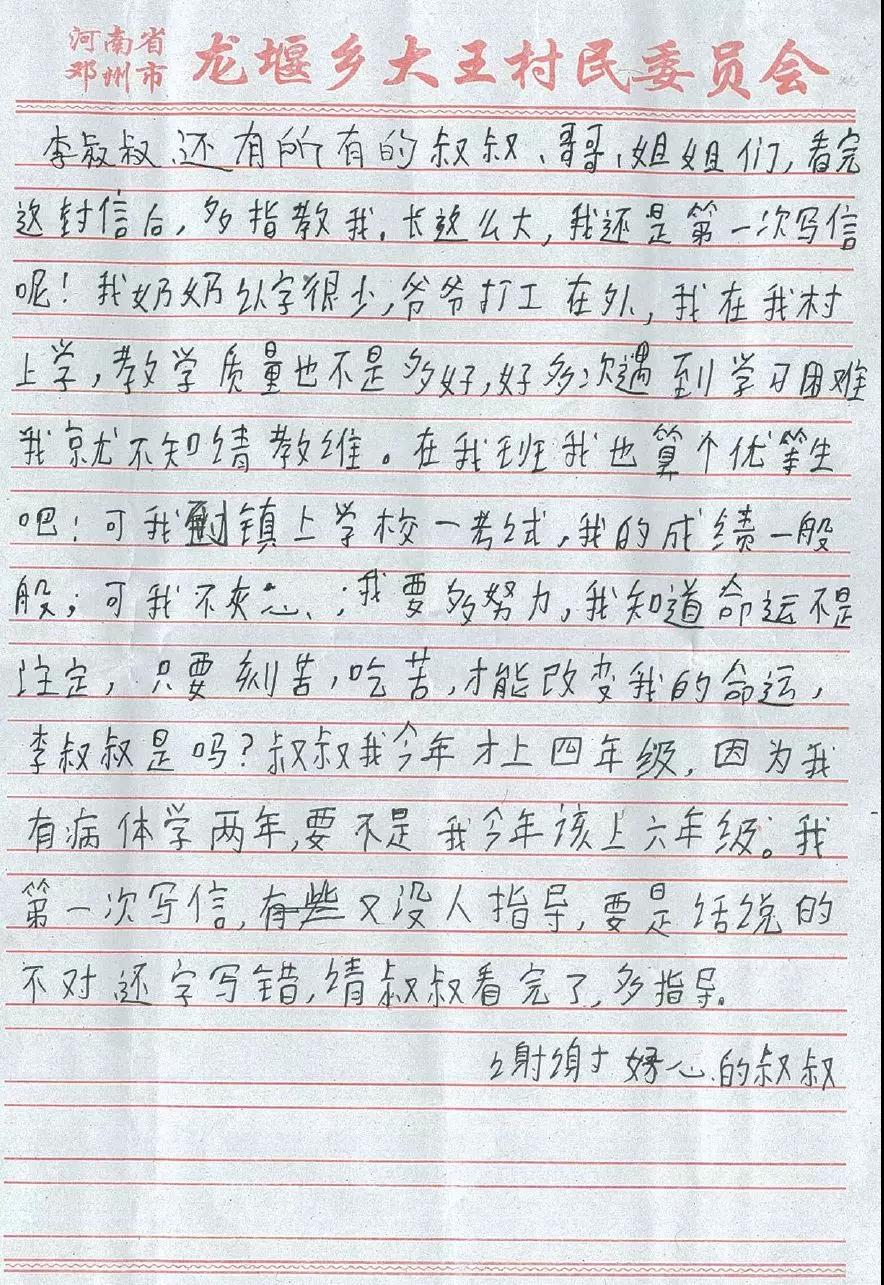 河南省
邓州市
龙堰乡大王村民委员会
李叔叔还有所有的叔叔、哥哥、姐姐们,看完
这封信后,多指教我。长这么大,我还是第一次写信
呢!我奶奶认字很少,爷爷打工在外,我在我村
上学,教学质量也不是多好,好多次遇到学习困难
我就不知请教谁。在我班我也算个优等生
吧!可我到镇上学校一考试,我的成绩一般
般;可我不灰心、;我要多努力,我知道命运不是
注定,只要刻苦,吃苦,才能改变我的命运,
李叔叔是吗?叔叔我今年才上四年级,因为我
有病体学两年,要不是我今年该上六年级。我
第一次写信,有些又没人指导,要是话说的
不对还字写错,请叔叔看完了,多指导。
谢谢好心的叔叔